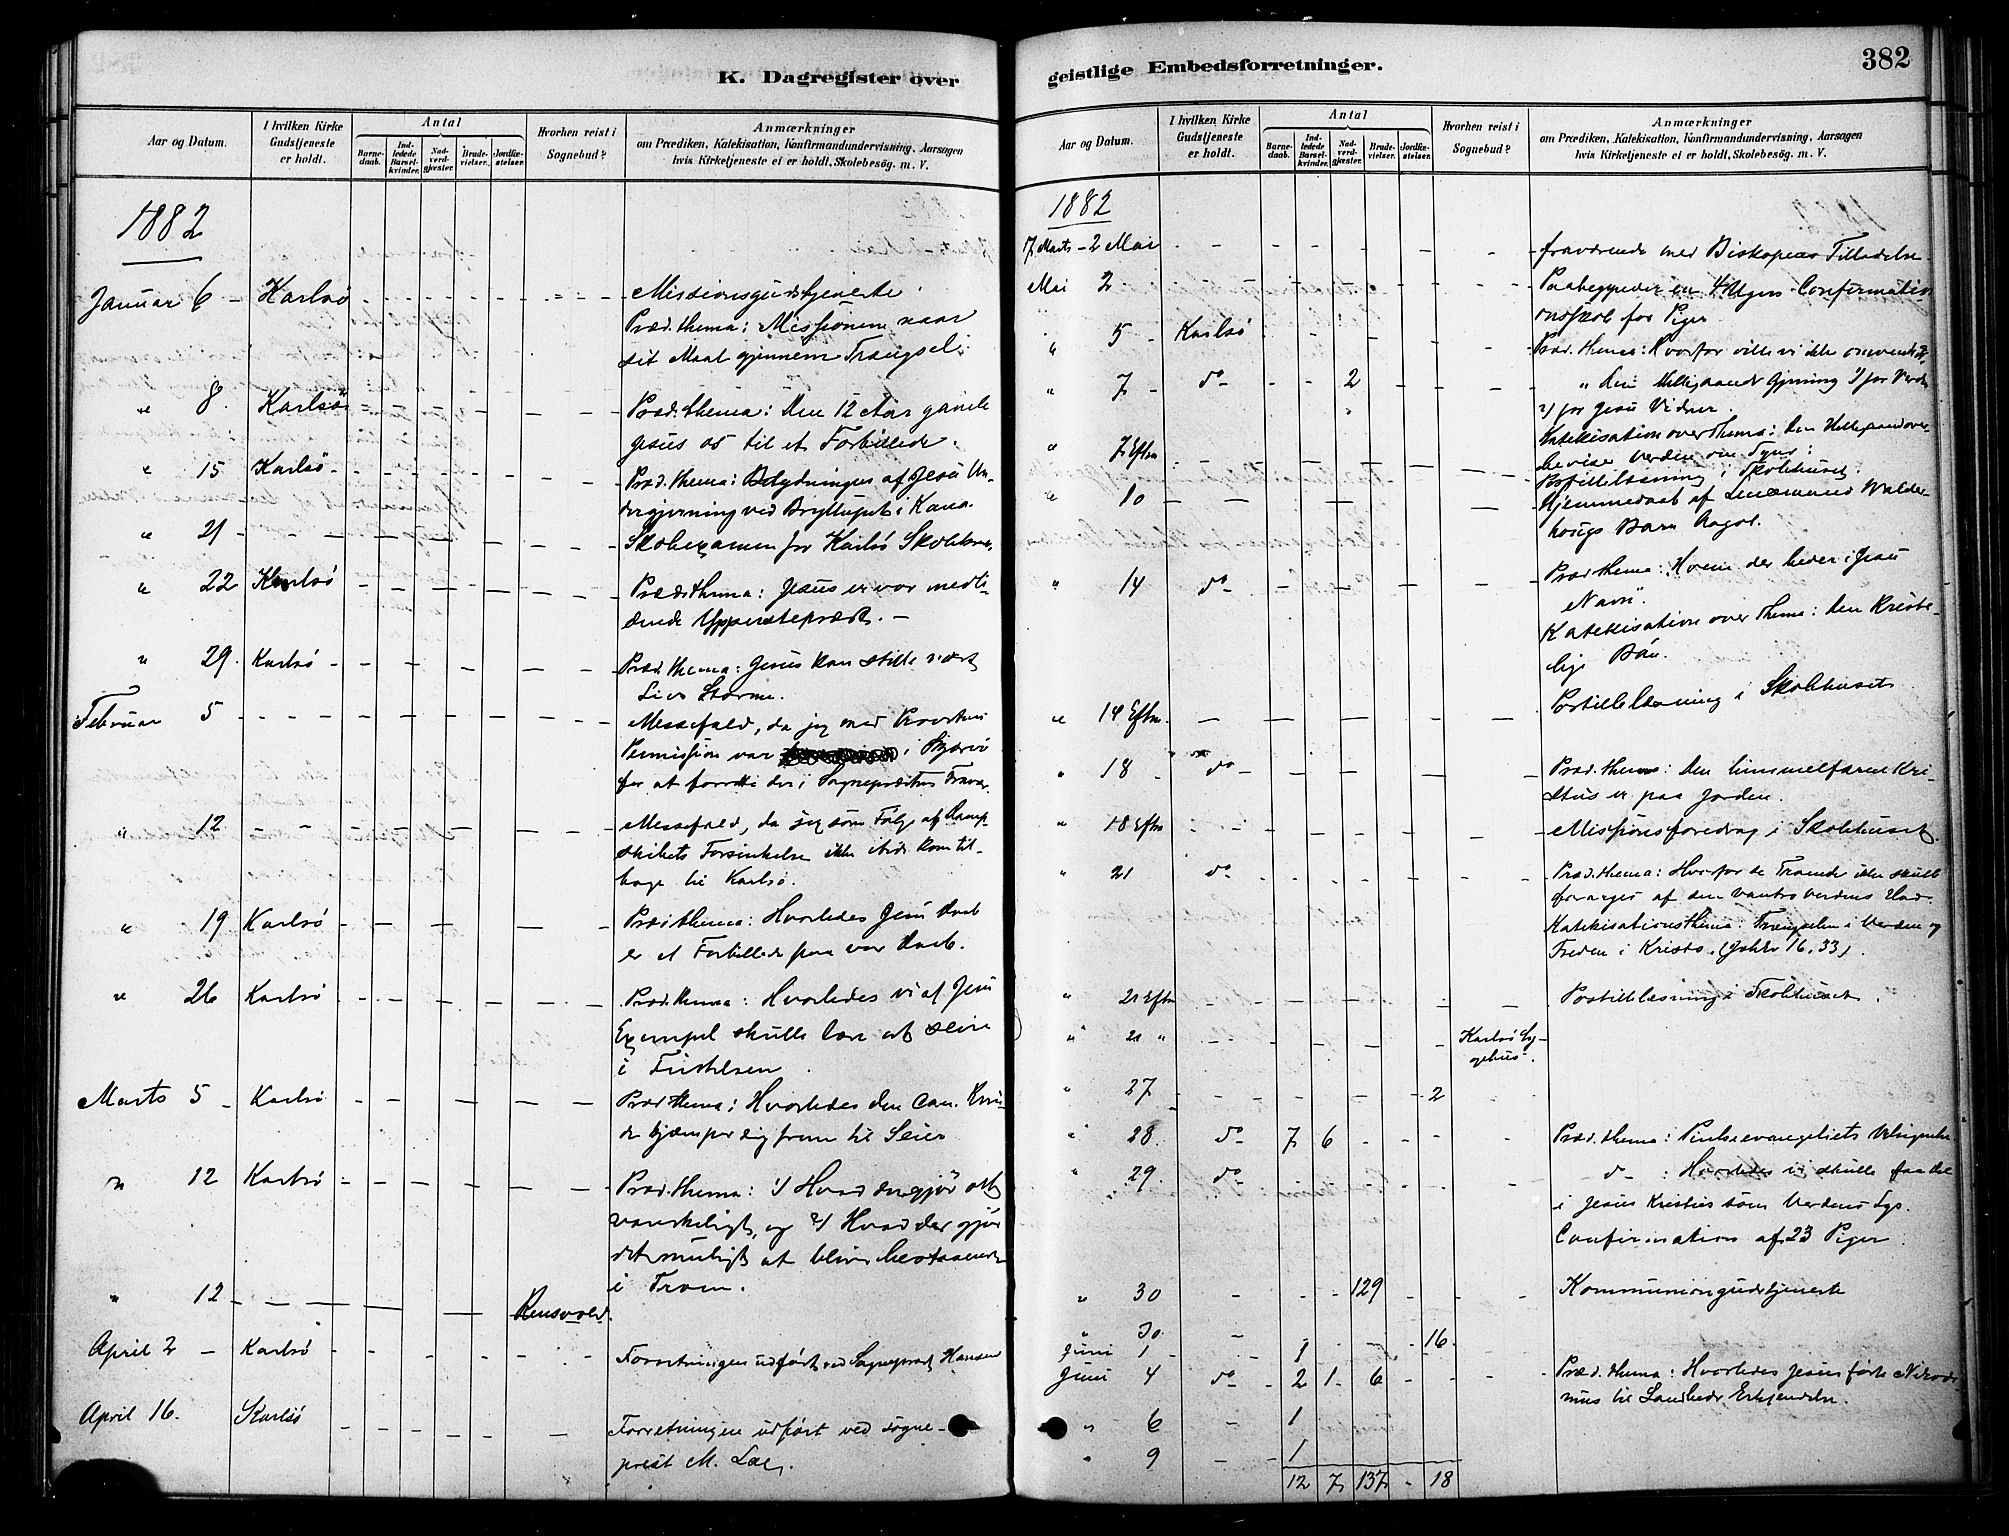 K. Dagregister over
Aar og Datum.
I hvilken Kirke Gudstjeneste er holdt.
Antal
Barne-daab.
Ind-ledede Barsel-kvinder.
Nad-verd-gjæster.
Brude-vielser.
Jordfæ-stelser.
Hvorhen reist i Sognebud?
Anmærkninger
om Prædiken, Katekisation, Konfirmandundervisning, Aarsagen
hvis Kirketjeneste ei er holdt, Skolebesøg. m. V.
1882
Januar 6 - Karlsö - - - - - - - Missionsgudstjeneste.
Præd. thema: Missionen naar
sit Maal gjennem Trængsel.
" 8. Karlsö - - - - - - Præd. thema: Den 12 Aar gamle
Jesus os til et Forbillede.
" 15 Karlsö - - - - - - Præd. thema: Betydningen af Jesu Un-
dergjerning ved Bryllupet i Kana.
" 21 - - - - - - - Skoleexamen for Karlsö Skolekreds.
" 22 Karlsö - - - - - - Præd. thema: Jesus er vor medli-
dende Ypperstepræst. -
" 29. Karlsö - - - - - - Præd. thema: Jesus kan stille vort
Livs Storme.
Februar 5 - - - - - - - Messefald, da jeg med Provstens
Permission var i Skjervö
for at forrette der i Sognepræstens Fravær.
" 12 - - - - - - - Messefald, da jeg som Følge af Damp-
skibets Forsinkelse ikke kom til-
bage til Karlsö.
" 19 Karlsö - - - - - - Præd. thema: Hvorledes Jesu Daab
er et Forbillede paa vor Daab.
" 26 Karlsö - - - - - - Præd. thema: Hvorledes vi af Jesu
Exempel skulle lære at seire
i Fristelsen.
Marts 5 - Karlsö - - - - - - Præd. thema: Hvorledes den Can. Kvin-
de kjæmper sig frem til Seier
" 12 Karlsö - - - - - - Præd. thema: 1) Hvad der gjör det
vanskeligt, og 2) Hvad der gjör
det muligt at blive bestaaende
i Troen.
" 12 - - - - - - Rensvold.
April 2 - Karlsö - - - - - - Forretningen udført ved Sognepræst Hansen
April 16. Karlsö - - - - - - Forretningen udført ved sogne-
prest M.
geistlige Embedsforretninger.
382
Aar og Datum.
I hvilken Kirke Gudstjeneste er holdt.
Antal
Barne-daab.
Ind-ledede Barsel-kvinder.
Nad-verd-gjæster.
Brude-vielser.
Jordfæ-stelser.
Hvorhen reist i Sognebud?
Anmærkninger
om Prædiken, Katekisation, Konfirmandundervisning, Aarsagen
hvis Kirketjeneste ei er holdt, Skolebesøg. m. V.
1882
17 Marts - 2 Mai - - - - - - - fraværende med Biskopens Tilladelse
Mai 2 - - - - - - - Paabegynder en 4 Ugers Confirmation
for Piger
" 5 - Karlsö - - - - - - Præd. thema: Hvorfor ville vi ikke
" 7 - do - - 2 - - - " Den Helligaands Gjerning 1) for Verden
2) for Jesu Vidner.
Katekisation over Thema: den Helligaand over-
bevise Verden om Synd.
" 7 Eftm - - - - - - - Postillelæsning i Skolehuset.
" 10 - - - - - - - Hjemmedaab af Lensmand Walder-
hougs Barn Aagot.
" 14 do - - - - - - Præd. thema: Hvem der beder i Jesu
Navn.
Katekisation over Thema: den Kriste-
lige Bön.
" 14 Eftm. - - - - - - - Postillelæsning i Skolehuset
" 18 - do - - - - - - Præd. thema: Den himmelfarne Kri-
stus er paa Jorden.
" 18 Eftm - - - - - - - Missionsforedrag i Skolehuset.
" 21 do - - - - - - Præd. thema: Hvorfor de Troende ikke skulle
forarges af den vantro Verdens Had.
Katekisationsthema: Trængselen i Verden og
Freden i Kristo. (Joh Ev 16, 33).
" 21 Eftm - - - - - - - Postillelæsning i Skolehuset.
" 21 " - - - - - - Karlsö Sy-
gehus.
" 27 - - - - - 2 - -
" 28. do 7 6 - - - - Præd. thema: Pintseevangeliets Velsignelse
" 29. do - - - - - - do : Hvorledes vi skulle faa Del
i Jesus Kristus som Verdens Lys.
Confirmation af 23 Piger
" 30 - - - 129 - - - Kommuniongudstjeneste
" 30. - - - - - 16.
Juni 1 - 1 - - - -
Juni 4 do 2 1 6 - - - Præd. thema: Hvorledes Jesus førte Nikode-
mus til Sandheds Erkjendelse.
" 6 - 1
" 9 - 1
12 7 137 - 18